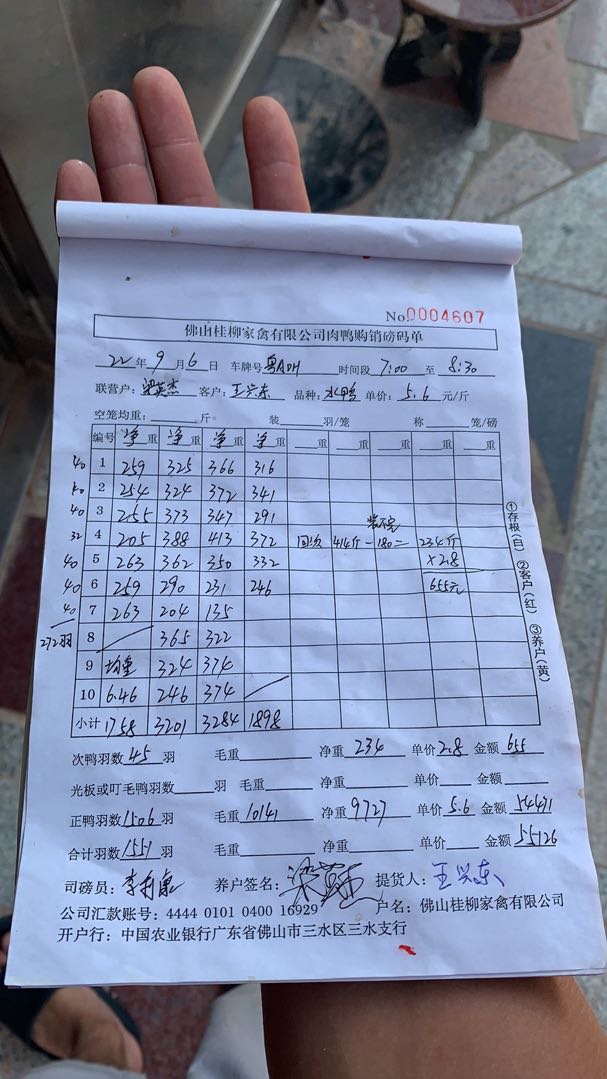 No 0004607
佛山桂柳家禽有限公司肉鸭购销磅码单
22年9月6日 车牌号 粤ADH 时间段 7:00 至 8:30
联营户：梁英杰 客户：王兴东 品种：水鸭 单价：5.6 元/斤
空笼均重：斤 装 羽/笼 称 笼/磅
编号 净重 净重 净重 净重 重 重 重 重 重
40 1 259 325 366 316
2 254 324 372 341
40 3 255 373 347 291
32 4 205 388 413 372 414斤-180= 234斤
40 5 263 362 350 332 ×2.8
40 6 259 290 231 246 655元
40 7 263 204 135
272羽 8 365 322
9 均重 324 374
10 6.46 246 374
小计 1758 3201 3284 1898
①存根(白) ②客户(红) ③养户(黄)
次鸭羽数 45 羽 毛重 净重 234 单价 2.8 金额 655
光板或叮毛鸭羽数 羽 毛重 净重 单价 金额
正鸭羽数 1506 羽 毛重 10141 净重 9727 单价 5.6 金额 54471
合计羽数 1551 羽 毛重 净重 单价 金额 55126
司磅员： 养户签名： 提货人：王兴东
公司汇款账号：4444 0101 0400 16929 户名：佛山桂柳家禽有限公司
开户行：中国农业银行广东省佛山市三水区三水支行